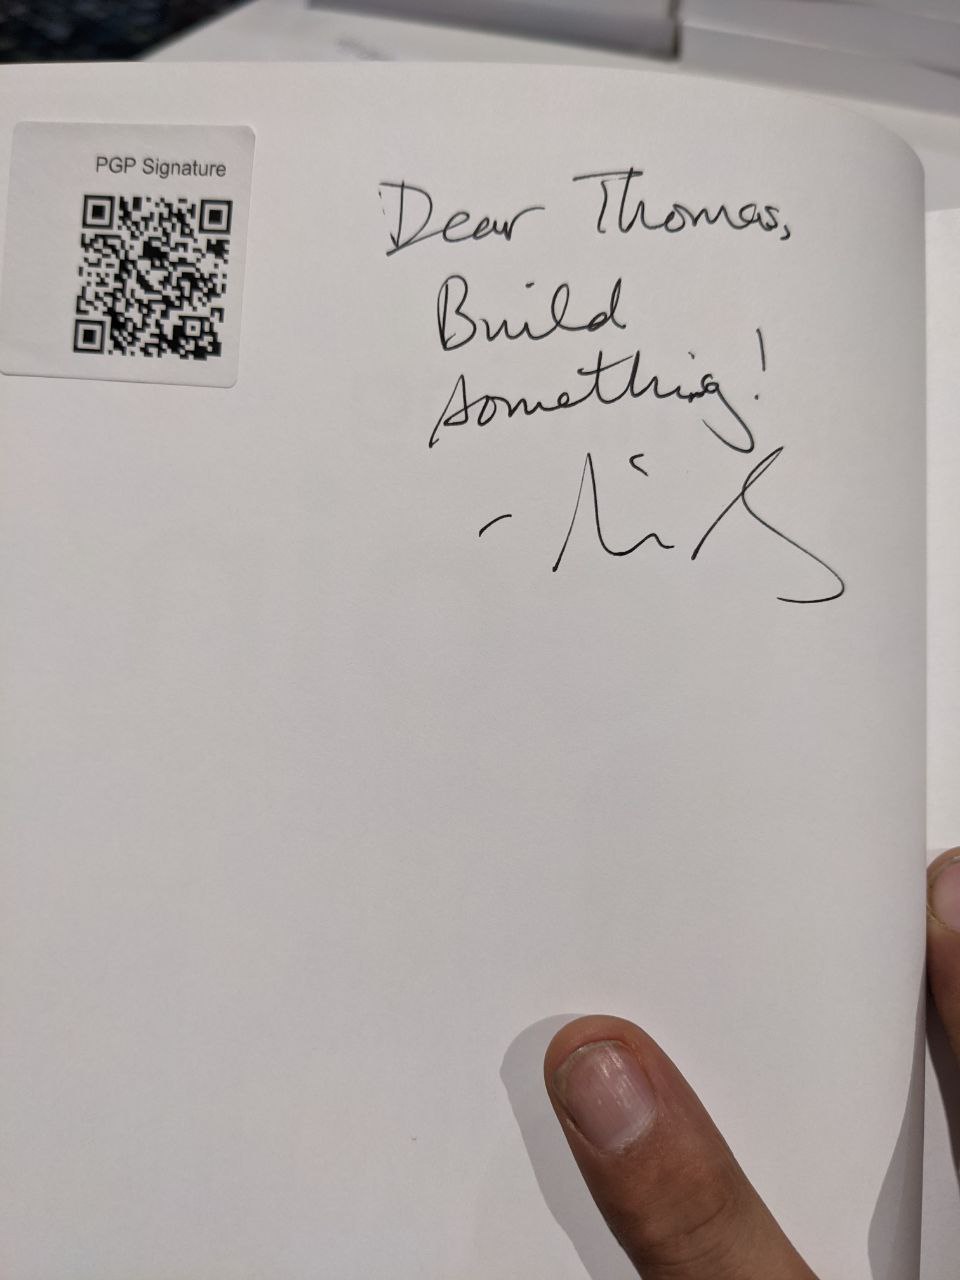 PGP Signature
Dear Thomas,
Build
something!